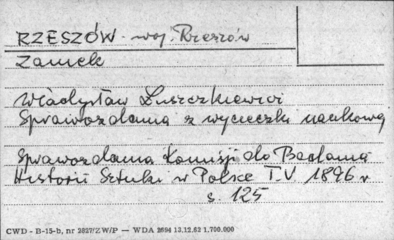 RZESZÓW - woj. Rzeszów
Zamek
Władysław Łuszczkiewicz
Sprawozdania z wycieczki naukowej
Sprawozdania Komisji do Badania
Historii Sztuki w Polsce T.V. 1896 r
s. 125
CWD - B-15-b, nr 2827/ZW/P — WDA 2694 13.12.62 1.700.000